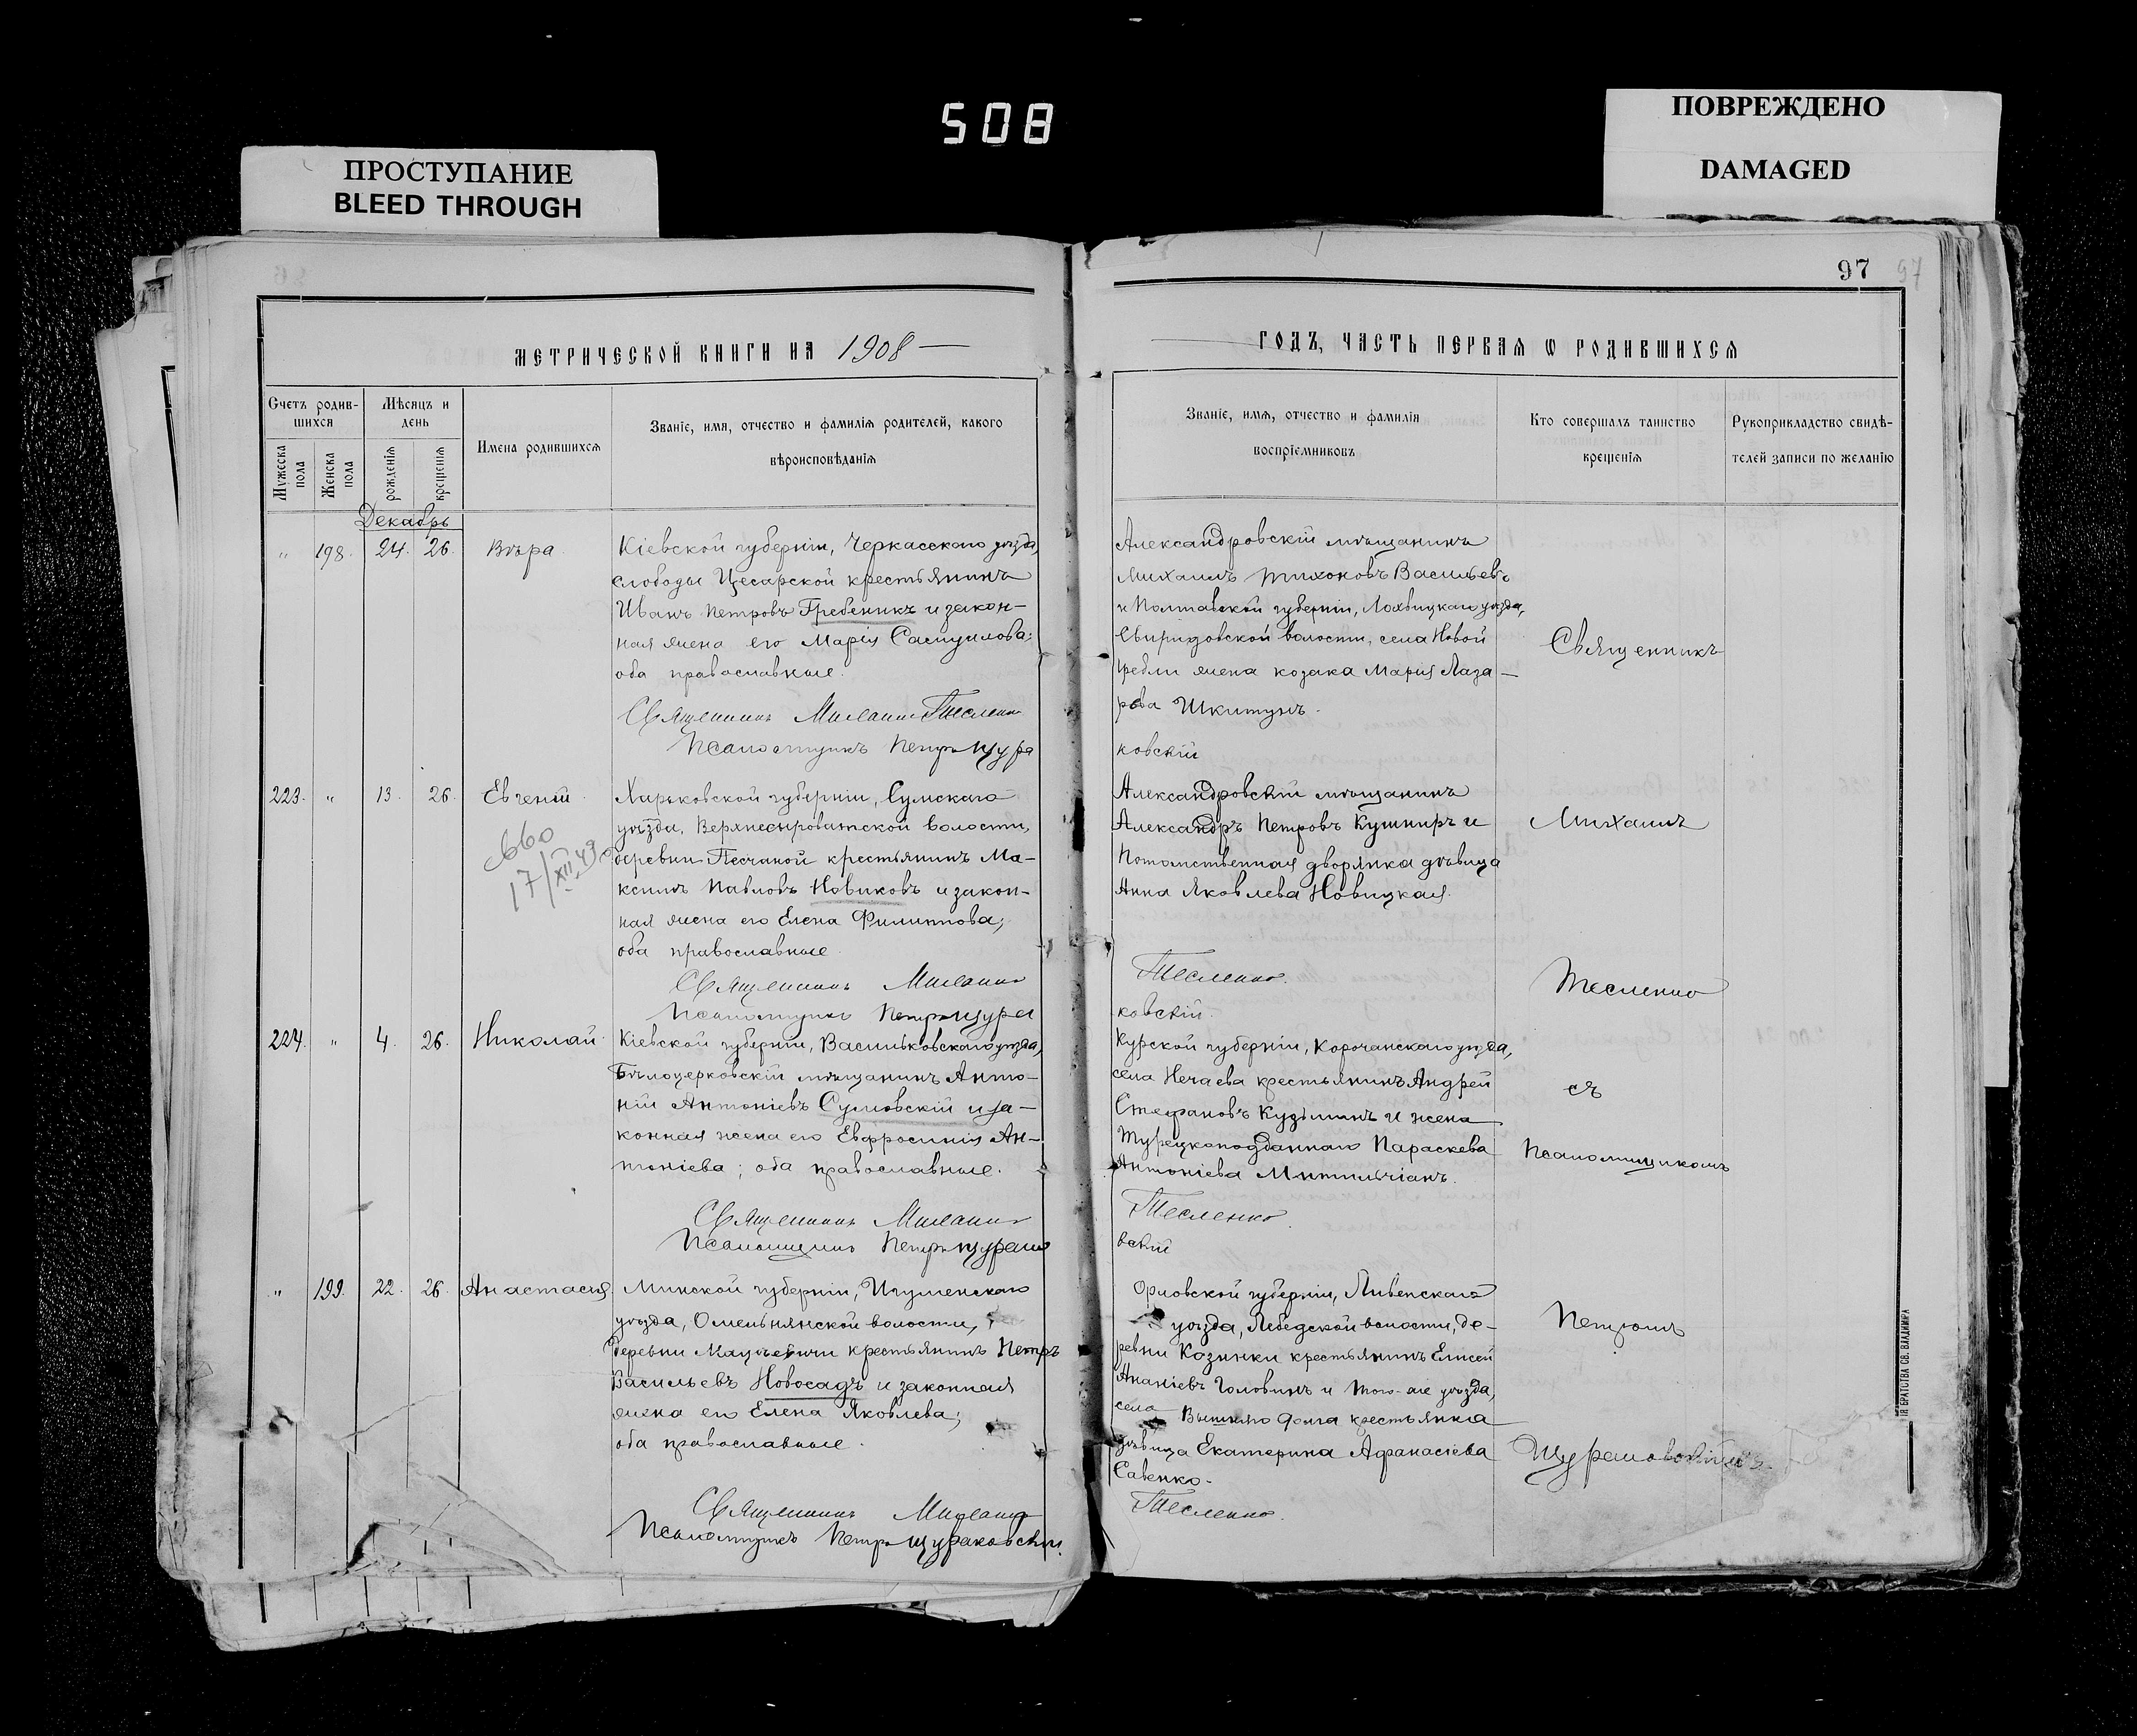 508
ПОВРЕЖДЕНО
DAMAGED
ПРОСТУПАНИЕ
BLEED THROUGH
97
97
МЕТРИЧЕСКОЙ КНИГИ НА 1908
ГОДЪ, ЧАСТЬ ПЕРВАЯ Ѡ РОДИВШИХСЯ
Счетъ родив-
шихся
Мѣсяцъ и
день
Мужеска
пола
Женска
пола
рожденія
крещенія
Имена родившихся
Званіе, имя, отчество и фамилія родителей, какого
вѣроисповѣданія
Званіе, имя, отчество и фамилія
воспріемниковъ
Кто совершалъ таинство
крещенія
Рукоприкладство свидѣ-
телей записи по желанію
Декабрь
" 198. 24. 26. Вѣра.
Кіевской губерніи, Черкасскаго уѣзда,
слободы Цесарской крестьянинъ
Иванъ Петровъ Гребеникъ и закон-
ная жена его Марія Самуилова;
оба православные.
Священникъ Михаилъ Тесленко
Псаломщикъ Петръ Щура
Александровскій мѣщанинъ
Михаилъ Тихоновъ Васильевъ
и Полтавской губерніи, Лохвицкаго уѣзда,
Свиридовской волости, села Новой
Гребли жена козака Марія Лаза-
рева Шкитунъ.
ковскій
Священникъ
223. " 13. 26. Евгеній.
660
17/XII 49
Харьковской губерніи, Сумскаго
уѣзда, Верхнесыроватской волости,
деревни Песчаной крестьянинъ Ма-
ксимъ Павловъ Новиковъ и закон-
ная жена его Елена Филиппова;
оба православные.
Священникъ Михаилъ
Псаломщикъ Петръ Щура
Александровскій мѣщанинъ
Александръ Петровъ Кушниръ и
Потомственная дворянка дѣвица
Анна Яковлева Новицкая.
Тесленко.
ковскій.
Михаилъ
Тесленко
224. " 4. 26. Николай.
Кіевской губерніи, Васильковскаго уѣзда,
Бѣлоцерковскій мѣщанинъ Анто-
ній Антоніевъ Сумовскій и за-
конная жена его Евфросинія Ан-
тоніева; оба православные.
Священникъ Михаилъ
Псаломщикъ Петръ Щурако
Курской губерніи, Корочанскаго уѣзда,
села Нечаева крестьянинъ Андрей
Стефановъ Кузьминъ и жена
Турецкоподданнаго Параскева
Антоніева
Тесленко.
вскій
съ
Псаломщикомъ
" 199. 22. 26. Анастасія.
Минской губерніи, Игуменскаго
уѣзда, Омельнянской волости,
деревни крестьянинъ Петръ
Васильевъ Новосадъ и законная
жена его Елена Яковлева;
оба православные.
Священникъ Михаилъ
Псаломщикъ Петръ Щураковскій.
Орловской губерніи, Ливенскаго
уѣзда, Лебедской волости, де-
ревни Козинки крестьянинъ Елисей
Ананіевъ Головинъ и того-же уѣзда,
села Вышняго Долга крестьянка
дѣвица Екатерина Афанасіева
Савенко.
Тесленко.
Петромъ
Щураковскимъ.
ІЯ БРАТСТВА СВ. ВЛАДИМІРА